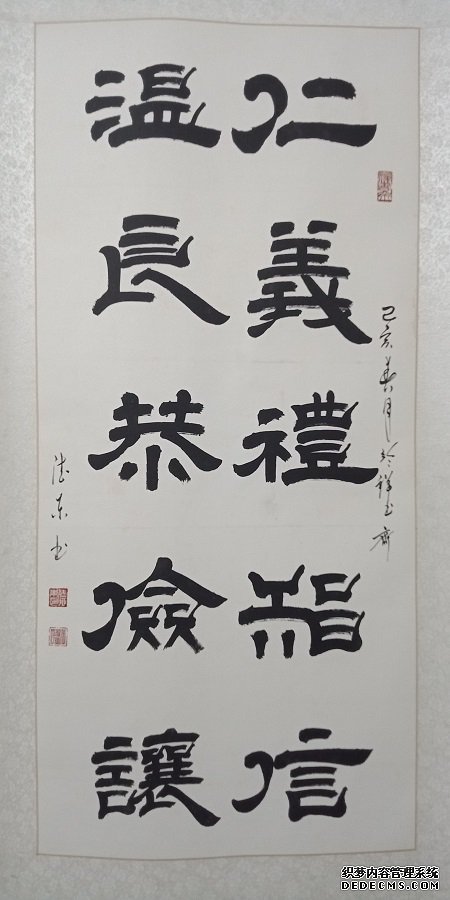 仁義禮智信
温良恭儉讓
己亥
月
祥
德东书
织梦内容管理系统
DEDECMS.COM